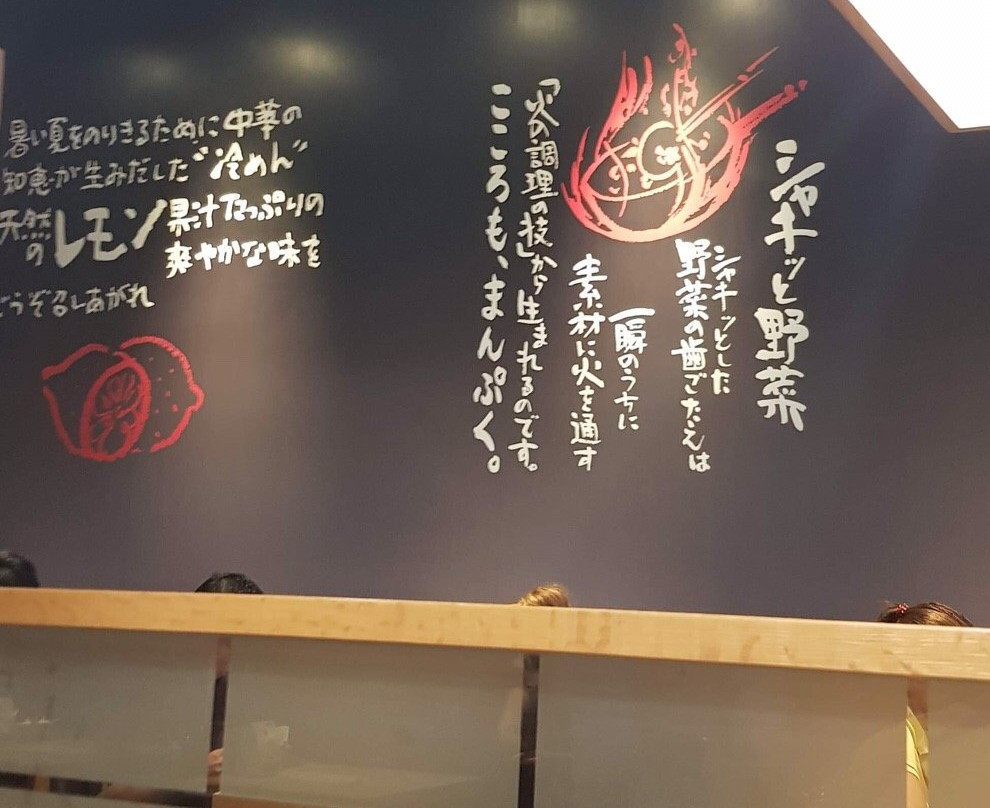 暑い夏をのりきるために中華の
知恵が生みだした“冷めん”
天然の
レモン
果汁たっぷりの
爽やかな味を
どうぞ召しあがれ
シャキッと野菜
シャキッとした
野菜の歯ごたえは
一瞬のうちに
素材に火を通す
「火の調理の技」から生まれるのです。
こころも、まんぷく。